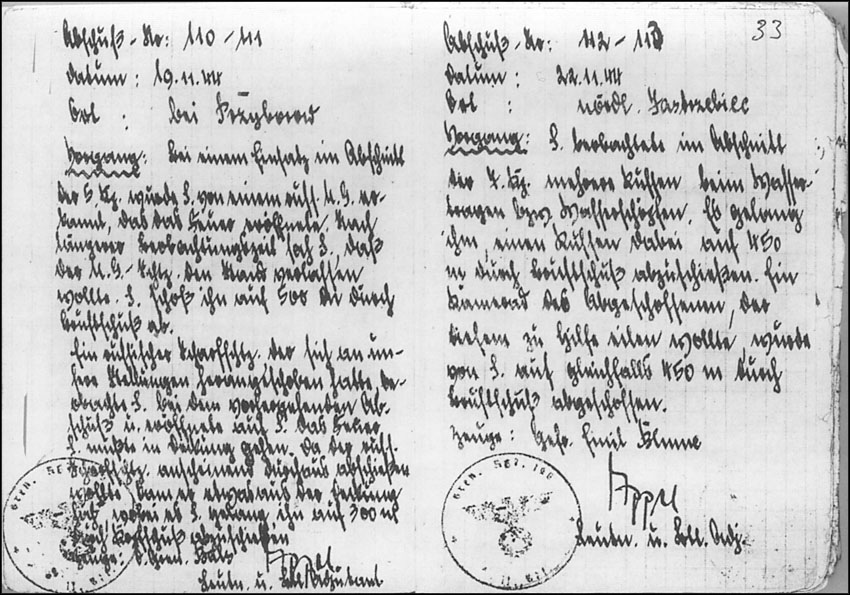 Abschuß-Nr: 110-111
Datum: 19.11.44
Ort : bei Przyborow
Vorgang: Bei einem Einsatz im Abschnitt
der 5 Kp. wurde S. von einem russ. M.G. er-
kannt, das das Feuer eröffnete. Nach
längerer Beobachtungszeit sah S., daß
der M.G.-Schtz. den Stand verlassen
wollte. S. schoß ihn auf 500 m durch
Brustschuß ab.
Ein russischer Scharfschtz. der sich an un-
sere Stellungen herangeschoben hatte, be-
obachtete S. bei dem vorhergehenden Ab-
schuß u. eröffnete auf S. das Feuer
S. mußte in Deckung gehen. Da der russ.
Scharfschtz. anscheinend durchaus abschießen
wollte kam er etwas aus der Deckung
wobei es S. gelang, ihn auf 300 m
durch Kopfschuß abzuschießen
Zeuge:
Appel
Leutn. u. Btl. Adjutant
33
Abschuß-Nr: 112-113
Datum: 22.11.44
Ort : nördl. Jastrzebiec
Vorgang: S. beobachtete im Abschnitt
der 7. Kp. mehrere Russen beim Wasser-
tragen bzw Wasserschöpfen. Es gelang
ihm, einen Russen dabei auf 450
m durch Brustschuß abzuschießen. Ein
Kamerad des Abgeschossenen, der
diesem zu Hilfe eilen wollte, wurde
von S. auf gleichfalls 450 m durch
Brustschuß abgeschossen.
Zeuge: Gefr. Emil
Appel
Leutn. u. Btl. Adj.